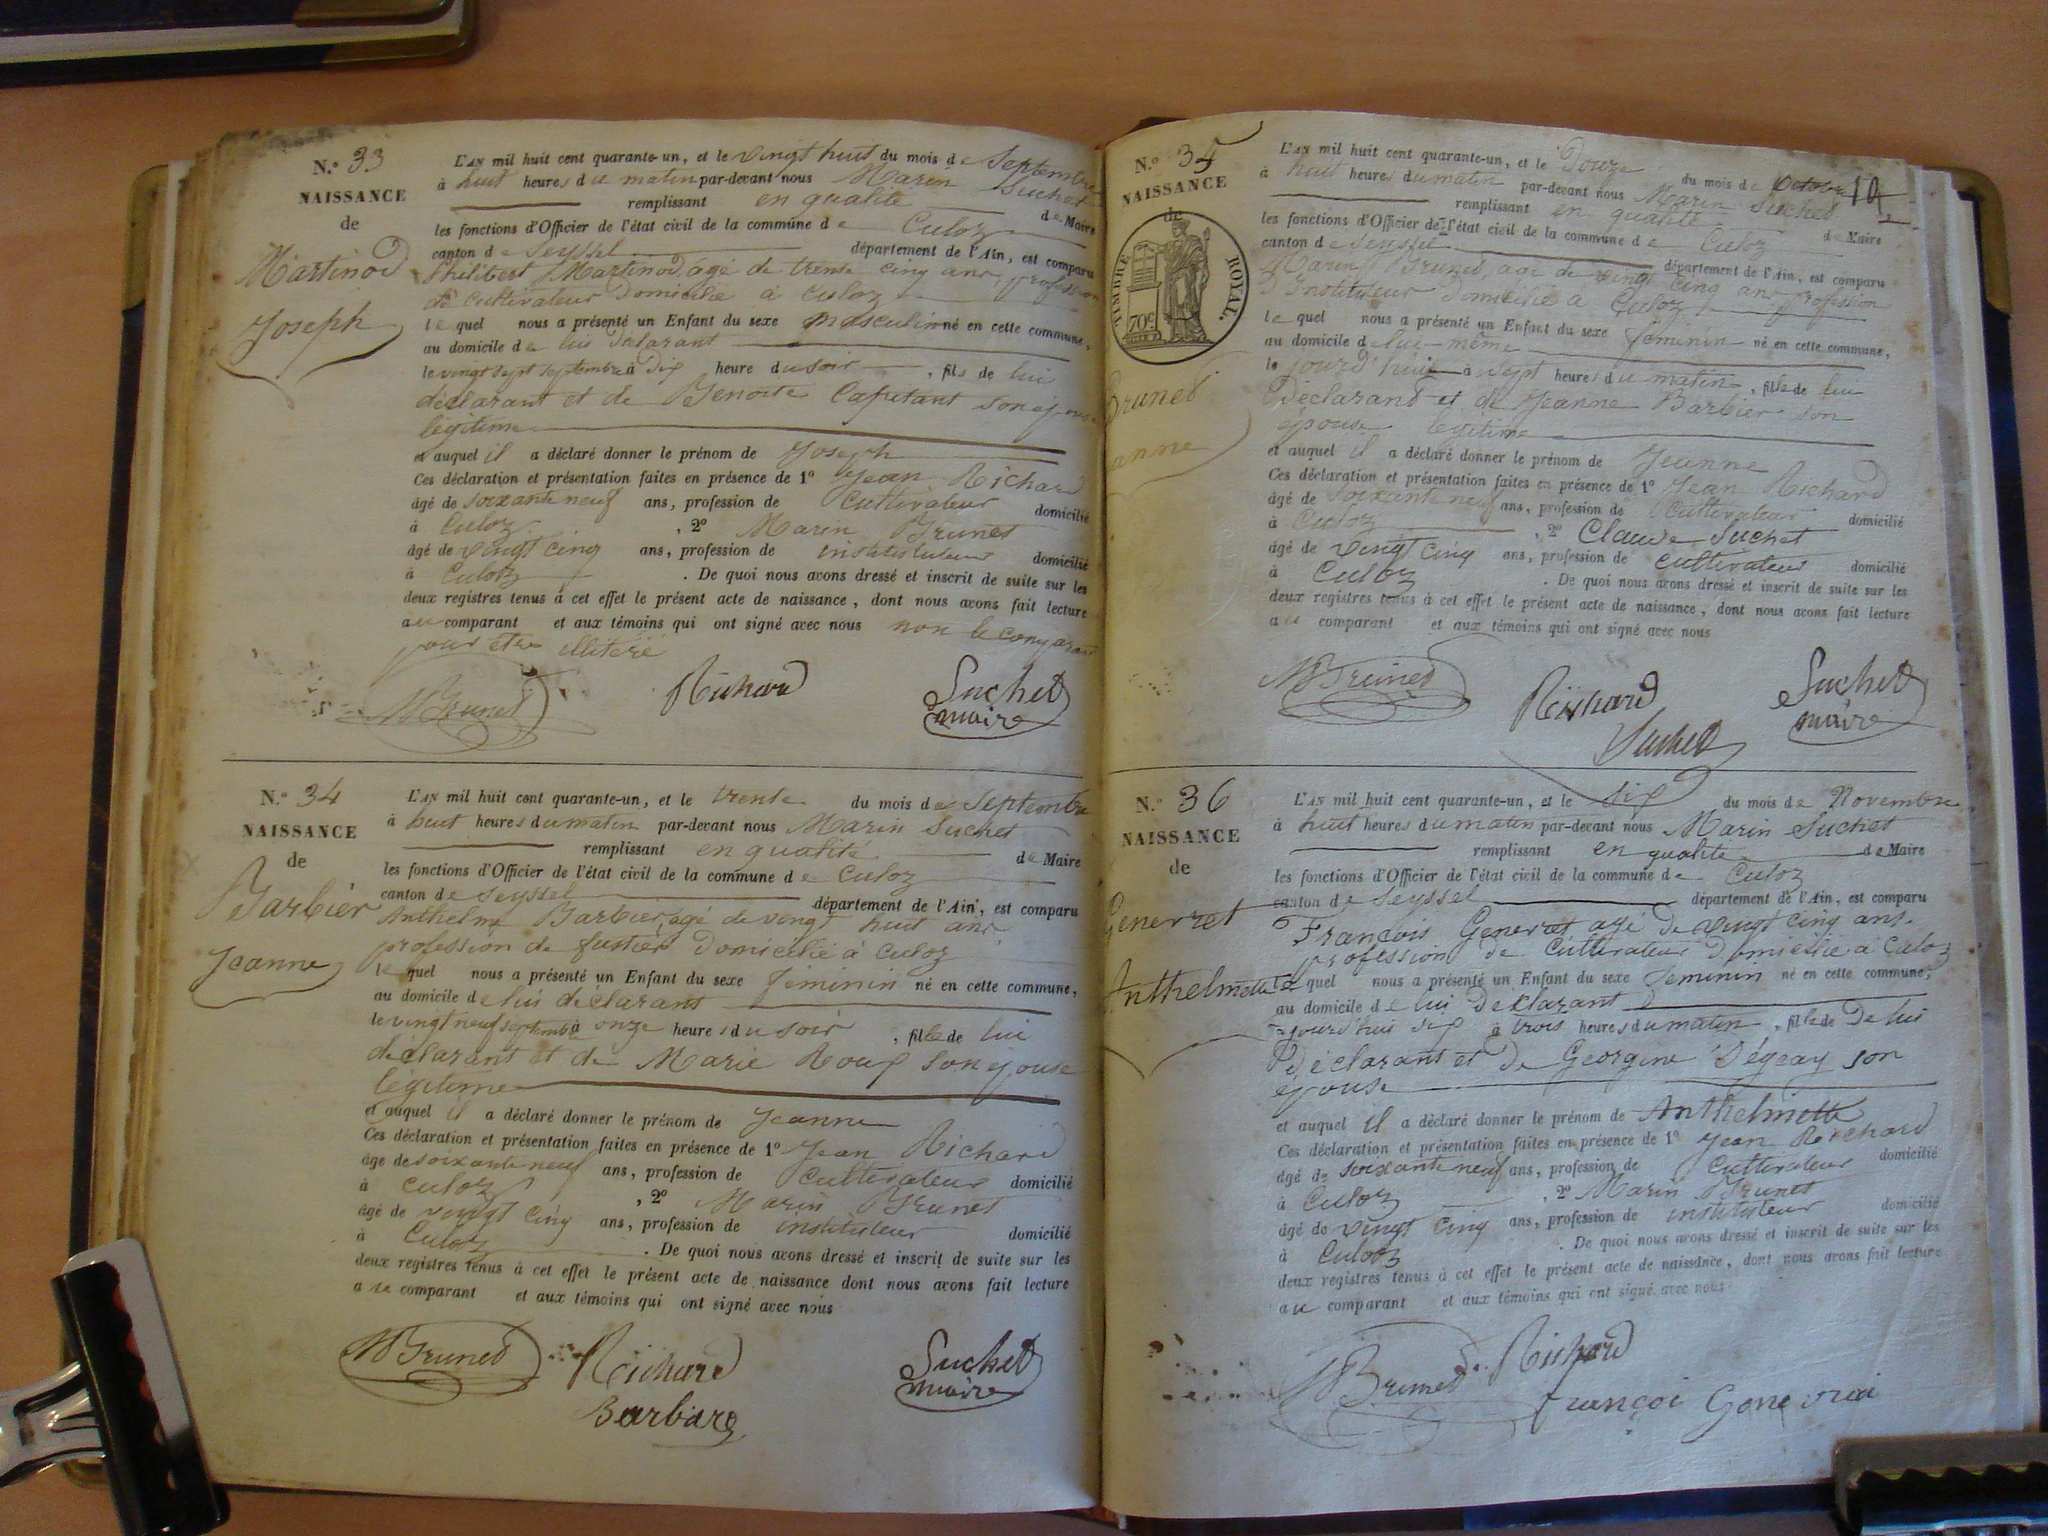 N.o 33
NAISSANCE
de
Martinod
Joseph
L'AN mil huit cent quarante-un, et le vingt huit du mois de Septembre
à huit heures du matin par-devant nous Marin Suchet
remplissant en qualité de Maire
les fonctions d'Officier de l'état civil de la commune de Culoz
canton de Seyssel département de l'Ain, est comparu
Philibert Martinod, âgé de trente cinq ans, profession
de cultivateur domicilié à Culoz
lequel nous a présenté un Enfant du sexe masculin né en cette commune,
au domicile de lui déclarant
le vingt sept septembre à dix heure du soir, fils de lui
déclarant et de Benoite Capitant son épouse
légitime
et auquel il a déclaré donner le prénom de Joseph
Ces déclaration et présentation faites en présence de 1o Jean Richard
âgé de soixante neuf ans, profession de Cultivateur domicilié
à Culoz, 2o Marin Brunet
âgé de vingt cinq ans, profession de instituteur domicilié
à Culoz. De quoi nous avons dressé et inscrit de suite sur les
deux registres tenus à cet effet le présent acte de naissance, dont nous avons fait lecture
au comparant et aux témoins qui ont signé avec nous non le comparant
pour être illitéré
M Brunet Richard Suchet
maire
N.o 34
NAISSANCE
de
Barbier
Jeanne
L'AN mil huit cent quarante-un, et le trente du mois de Septembre
à huit heures du matin par-devant nous Marin Suchet
remplissant en qualité de Maire
les fonctions d'Officier de l'état civil de la commune de Culoz
canton de Seyssel département de l'Ain, est comparu
Anthelme Barbier, âgé de vingt huit ans
profession de fustier domicilié à Culoz
lequel nous a présenté un Enfant du sexe féminin né en cette commune,
au domicile de lui déclarant
le vingt neuf septembre à onze heures du soir, fille de lui
déclarant et de Marie Roux son épouse
légitime
et auquel il a déclaré donner le prénom de Jeanne
Ces déclaration et présentation faites en présence de 1o Jean Richard
âgé de soixante neuf ans, profession de Cultivateur domicilié
à Culoz, 2o Marin Brunet
âgé de vingt cinq ans, profession de instituteur domicilié
à Culoz. De quoi nous avons dressé et inscrit de suite sur les
deux registres tenus à cet effet le présent acte de naissance dont nous avons fait lecture
au comparant et aux témoins qui ont signé avec nous
M Brunet Richard Suchet
maire
Barbier
N.o 35
NAISSANCE
de
TIMBRE ROYAL.
70c
Brunet
Jeanne
L'AN mil huit cent quarante-un, et le Douze du mois de Octobre
à huit heures du matin par-devant nous Marin Suchet
remplissant en qualité de Maire
les fonctions d'Officier de l'état civil de la commune de Culoz
canton de Seyssel département de l'Ain, est comparu
Marin Brunet, âgé de vingt cinq ans profession
d'instituteur domicilié à Culoz
lequel nous a présenté un Enfant du sexe féminin né en cette commune,
au domicile de lui-même
le jourd'hui à sept heures du matin, fille de lui
Déclarant et de Jeanne Barbier son
épouse légitime
et auquel il a déclaré donner le prénom de Jeanne
Ces déclaration et présentation faites en présence de 1o Jean Richard
âgé de soixante neuf ans, profession de Cultivateur domicilié
à Culoz, 2o Claude Suchet
âgé de vingt cinq ans, profession de cultivateur domicilié
à Culoz. De quoi nous avons dressé et inscrit de suite sur les
deux registres tenus à cet effet le présent acte de naissance, dont nous avons fait lecture
au comparant et aux témoins qui ont signé avec nous
M Brunet Richard Suchet
maire
Suchet
N.o 36
NAISSANCE
de
Generret
Anthelmette
L'AN mil huit cent quarante-un, et le six du mois de Novembre
à huit heures du matin par-devant nous Marin Suchet
remplissant en qualité de Maire
les fonctions d'Officier de l'état civil de la commune de Culoz
canton de Seyssel département de l'Ain, est comparu
François Generet agé de vingt cinq ans.
profession de cultivateur domicilié à Culoz
lequel nous a présenté un Enfant du sexe féminin né en cette commune,
au domicile de lui déclarant
jourd'hui six à trois heures du matin, fille de De lui
Déclarant et de Georgine Dégeay son
épouse
et auquel il a déclaré donner le prénom de Anthelmette
Ces déclaration et présentation faites en présence de 1o Jean Richard
âgé de soixante neuf ans, profession de Cultivateur domicilié
à Culoz, 2o Marin Brunet
âgé de vingt cinq ans, profession de instituteur domicilié
à Culoz. De quoi nous avons dressé et inscrit de suite sur les
deux registres tenus à cet effet le présent acte de naissance, dont nous avons fait lecture
au comparant et aux témoins qui ont signé avec nous
M Brunet Richard
françoi